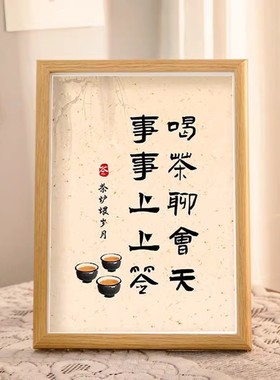 喝茶聊會天
事事上上签
茶
茶炉煨岁月